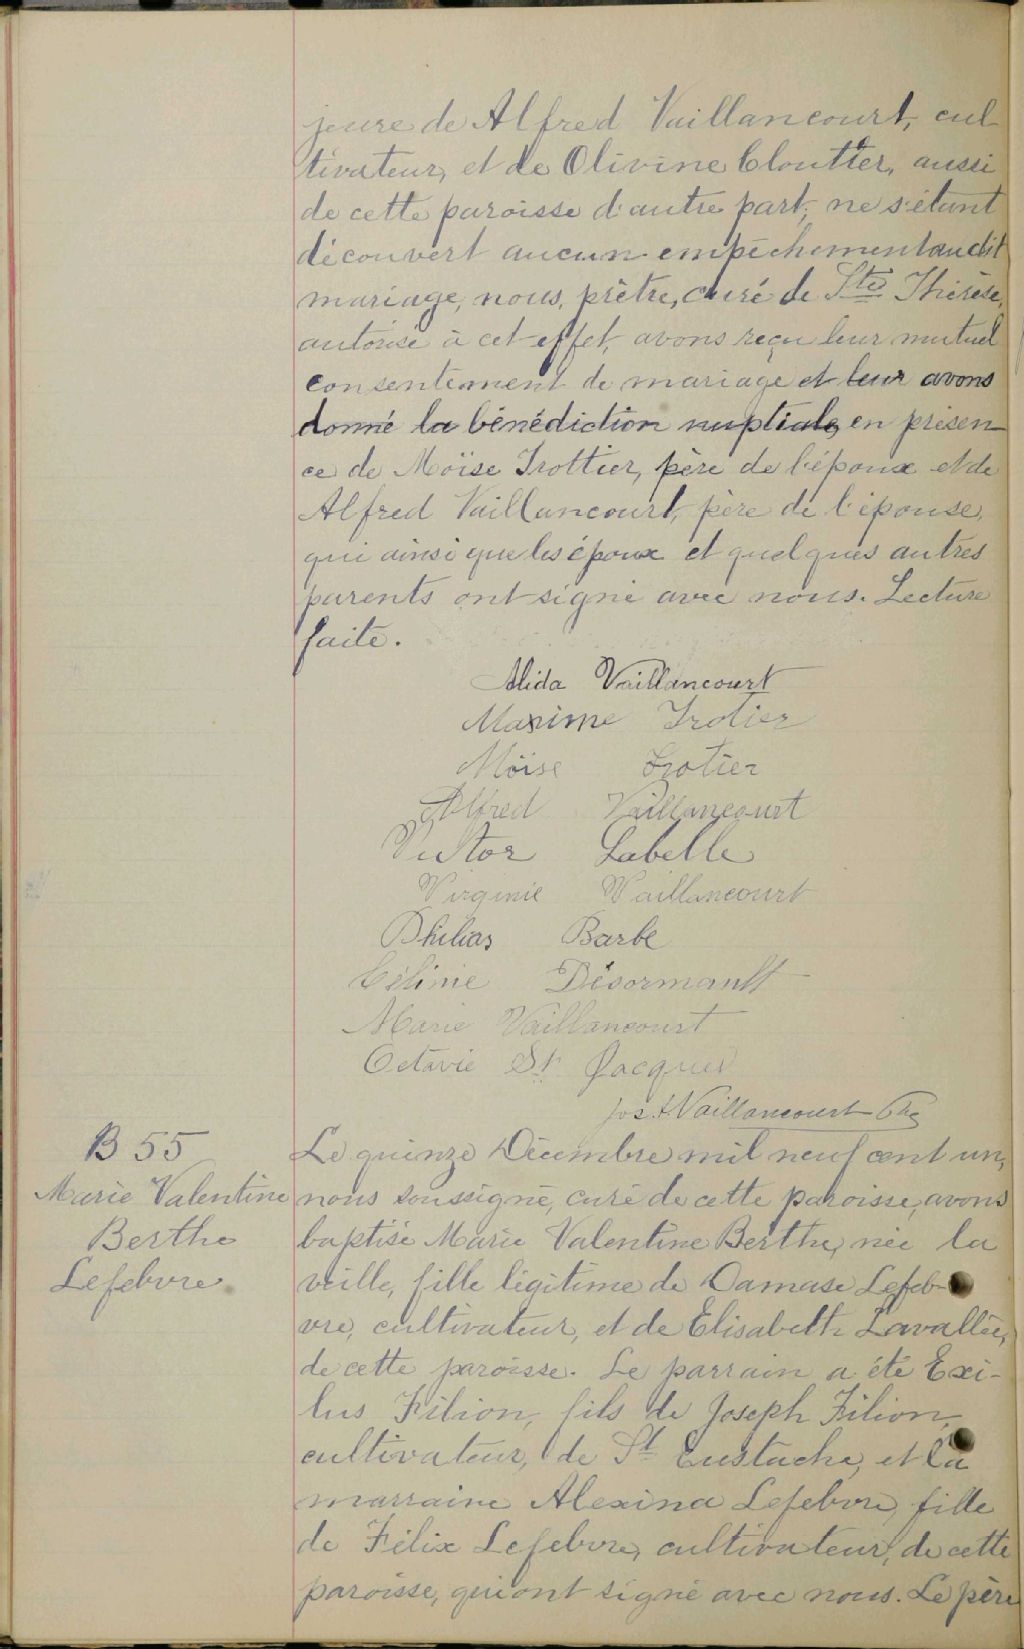 jeure de Alfred Vaillancourt, cul-
tivateur, et de Olivine Cloutier, aussi
de cette paroisse d'autre part, ne s'étant
découvert aucun empêchement au dit
mariage, nous, prêtre, curé de Ste Thérèse,
autorisé à cet effet, avons reçu leur mutuel
consentement de mariage et leur avons
donné la bénédiction nuptiale, en présen-
ce de Moïse Trottier, père de l'époux et de
Alfred Vaillancourt, père de l'épouse,
qui ainsi que les époux et quelques autres
parents ont signé avec nous. Lecture
faite.
Alida Vaillancourt
Maxime Trotier
Moïse Trotier
Alfred Vaillancourt
Victor Labelle
Virginie Vaillancourt
Philias Barbe
Céline Désormault
Marie Vaillancourt
Octavie St Jacques
Jos. A. Vaillancourt Ptre
B 55
Marie Valentine
Berthe
Lefebvre
Le quinze Décembre mil neuf cent un,
nous soussigné, curé de cette paroisse, avons
baptisé Marie Valentine Berthe, née la
veille, fille légitime de Damase Lefeb-
vre, cultivateur, et de Elisabeth Lavallée,
de cette paroisse. Le parrain a été Exi-
lus Filion, fils de Joseph Filion,
cultivateur, de St Eustache, et la
marraine Alexina Lefebvre, fille
de Félix Lefebvre, cultivateur, de cette
paroisse, qui ont signé avec nous. Le père